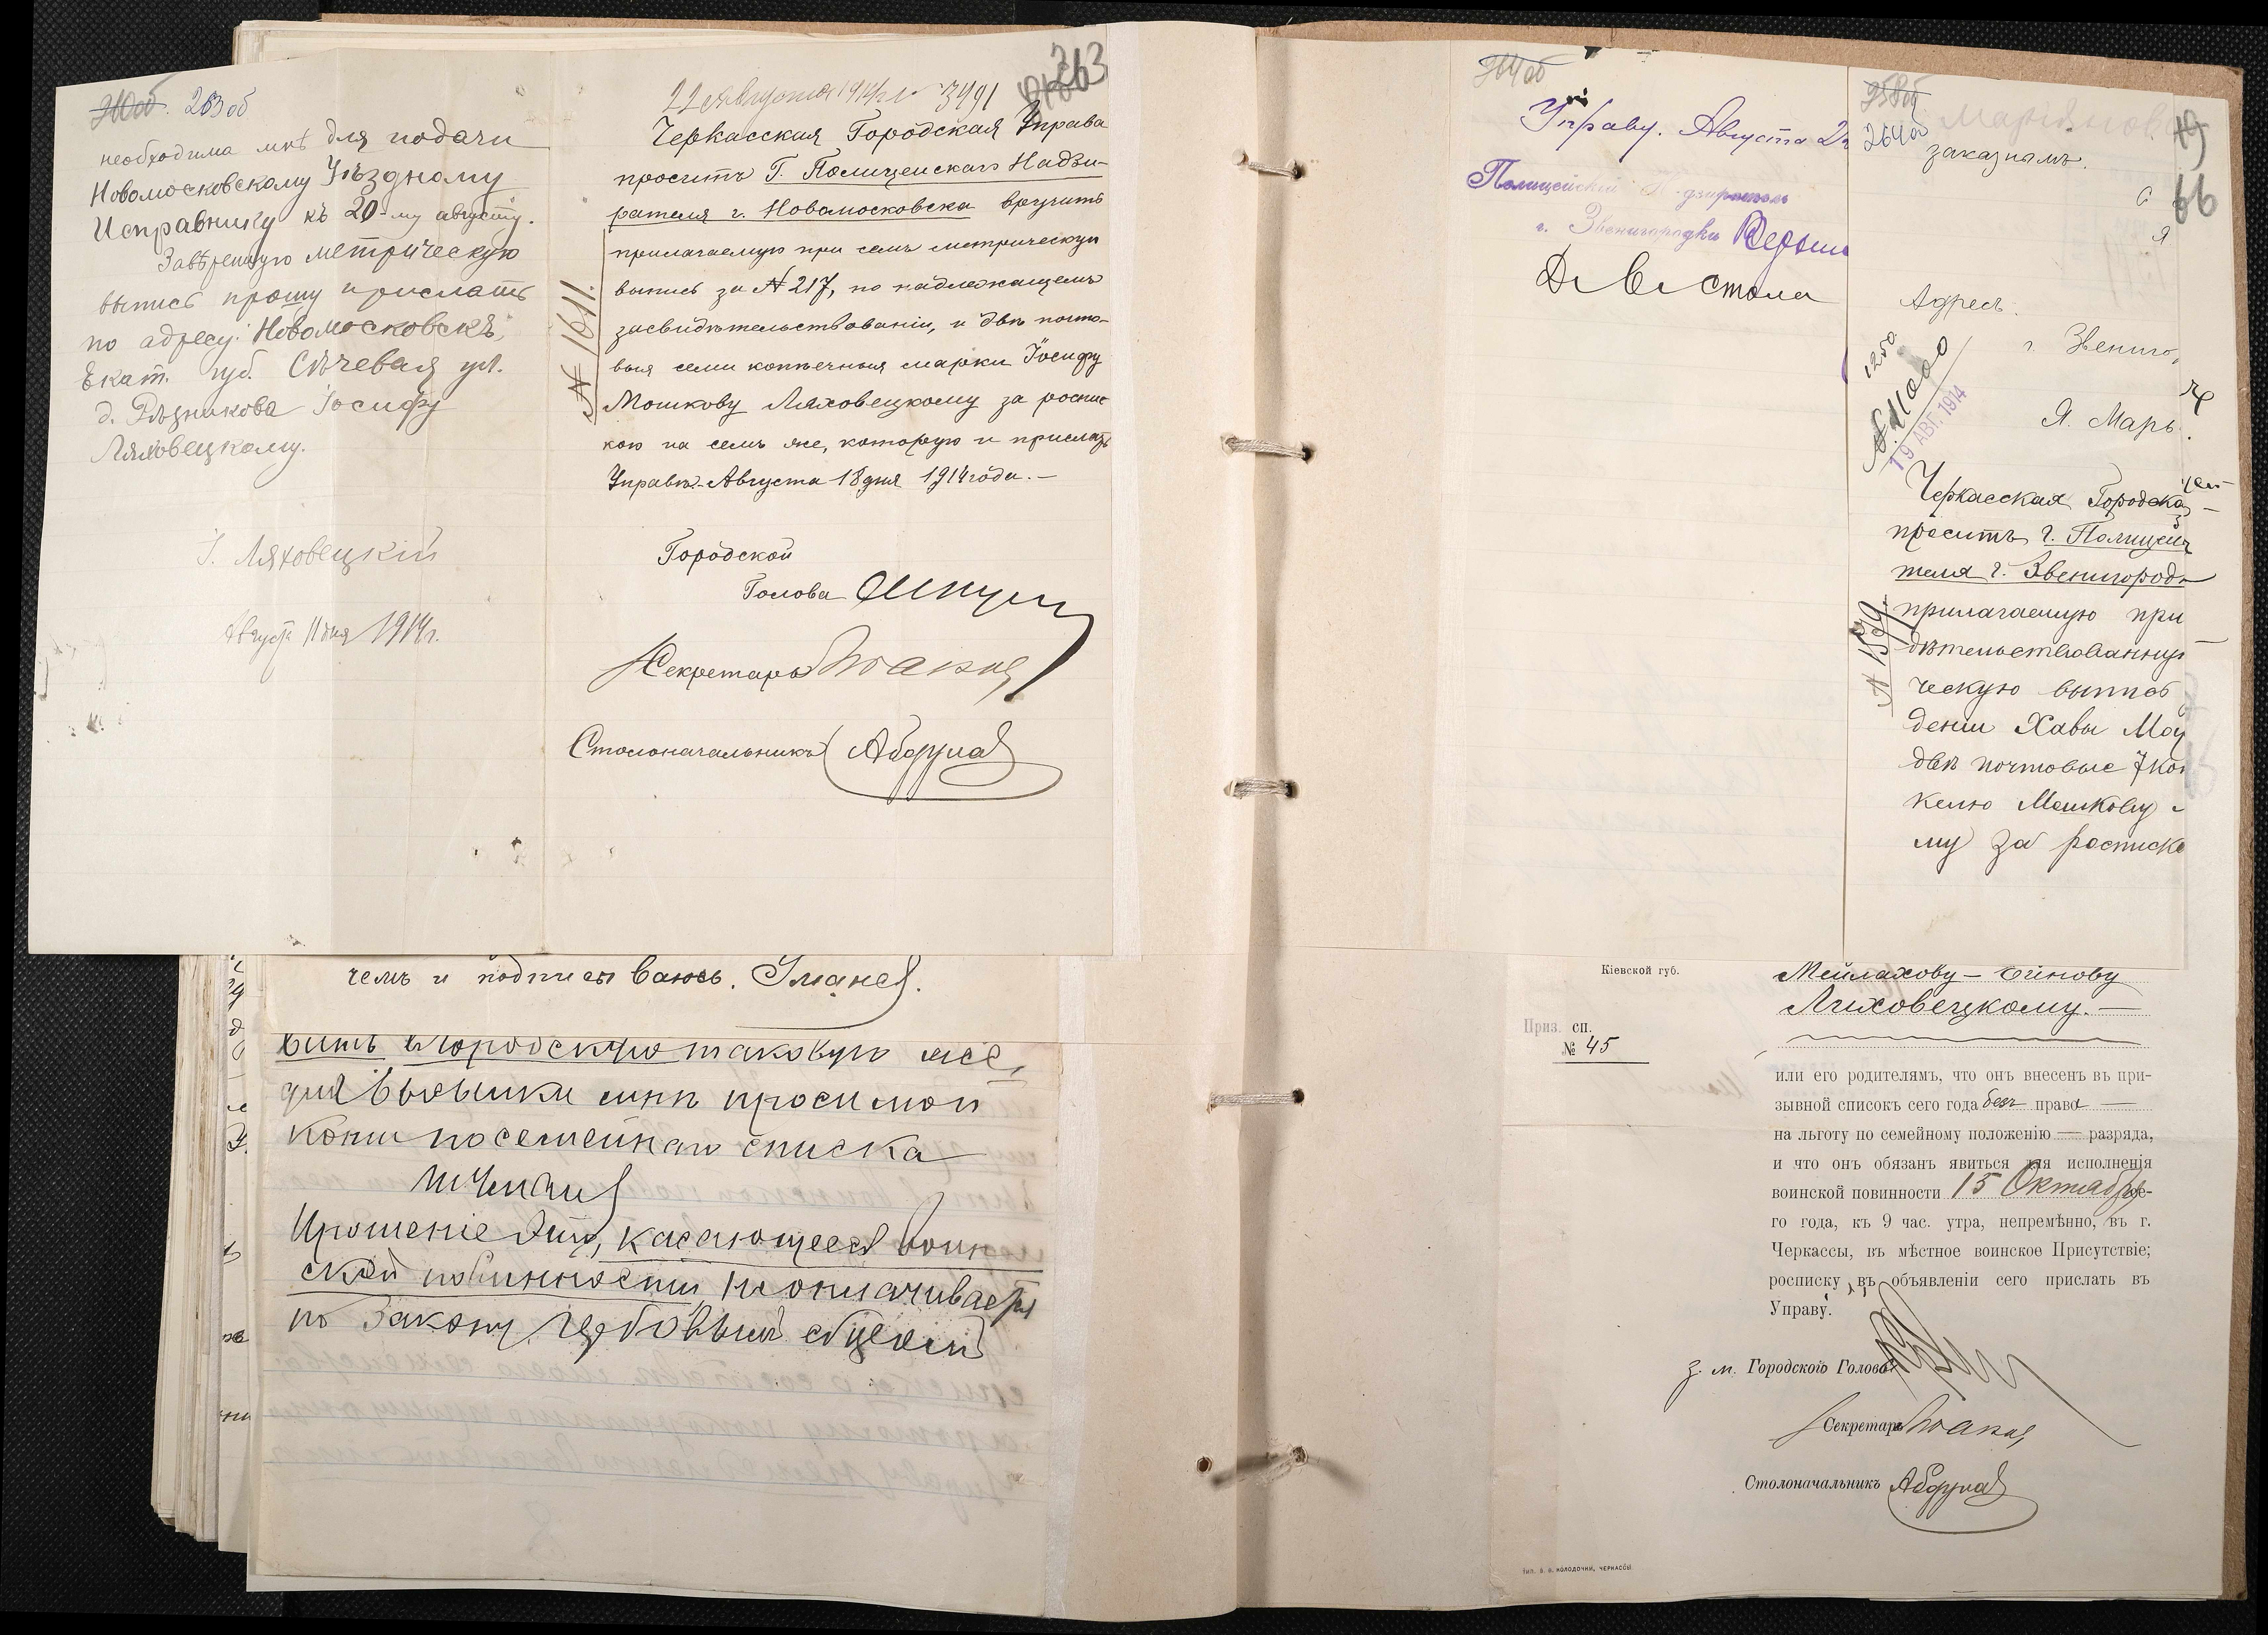 263об
необходима мнѣ для подачи
Новомосковскому Уѣздному
Исправнику къ 20-му августу.
Завѣренную метрическую
выпись прошу прислать
по адресу: Новомосковскъ,
Екат. губ. Сѣчевая ул.
д. Рѣзникова Іосифу
Ляховецкому.
І. Ляховецкій
Августа 11 дня 1914г.
263
22 Августа 1914 г. 3491
Черкасская Городская Управа
проситъ Г. Полицейскаго Надзи-
рателя г. Новомосковска вручить
прилагаемую при семъ метрическую
выпись за № 217, по надлежащемъ
засвидѣтельствованіи, и двѣ почто-
выя семи копѣечныя марки Іосифу
Мошкову Ляховецкому за роспис
кою на семъ же, которую и прислать
Управѣ. Августа 18 дня 1914 года. —
№ 1611.
Городской
Голова
Секретарь
Столоначальникъ
чемъ и подписываюсь.
вить въ городскую таковую же,
для высылки мнѣ просимой
копіи посемейнаго списка
Прошеніе это, касающееся воин
ской повинности, не оплачивается
по закону гербовымъ сборомъ
264об
Управу. Августа
Полицейскій Надзиратель
г. Звенигородки
264а
заказнымъ.
66
Адресъ:
г. Звениго
Я. Марь
1250
№ 11000
19 АВГ. 1914
Черкасская Городска
проситъ г. Полицей
теля г. Звенигород
прилагаемую при
дѣтельствованную
ческую выпись
деніи Хавы Мо
двѣ почтовые 7 коп
келю Мошкову
му за расписко
№ 1539
Кіевской губ.
Мейлахову-
Ляховецкому. —
Приз. сп.
№ 45
или его родителямъ, что онъ внесенъ въ при-
зывной списокъ сего года безъ права —
на льготу по семейному положенію — разряда,
и что онъ обязанъ явиться для исполненія
воинской повинности 15 Октября се-
го года, къ 9 час. утра, непремѣнно, въ г.
Черкассы, въ мѣстное воинское Присутствіе;
росписку въ объявленіи сего прислать въ
Управу.
з. м. Городского Головы
Секретарь
Столоначальникъ